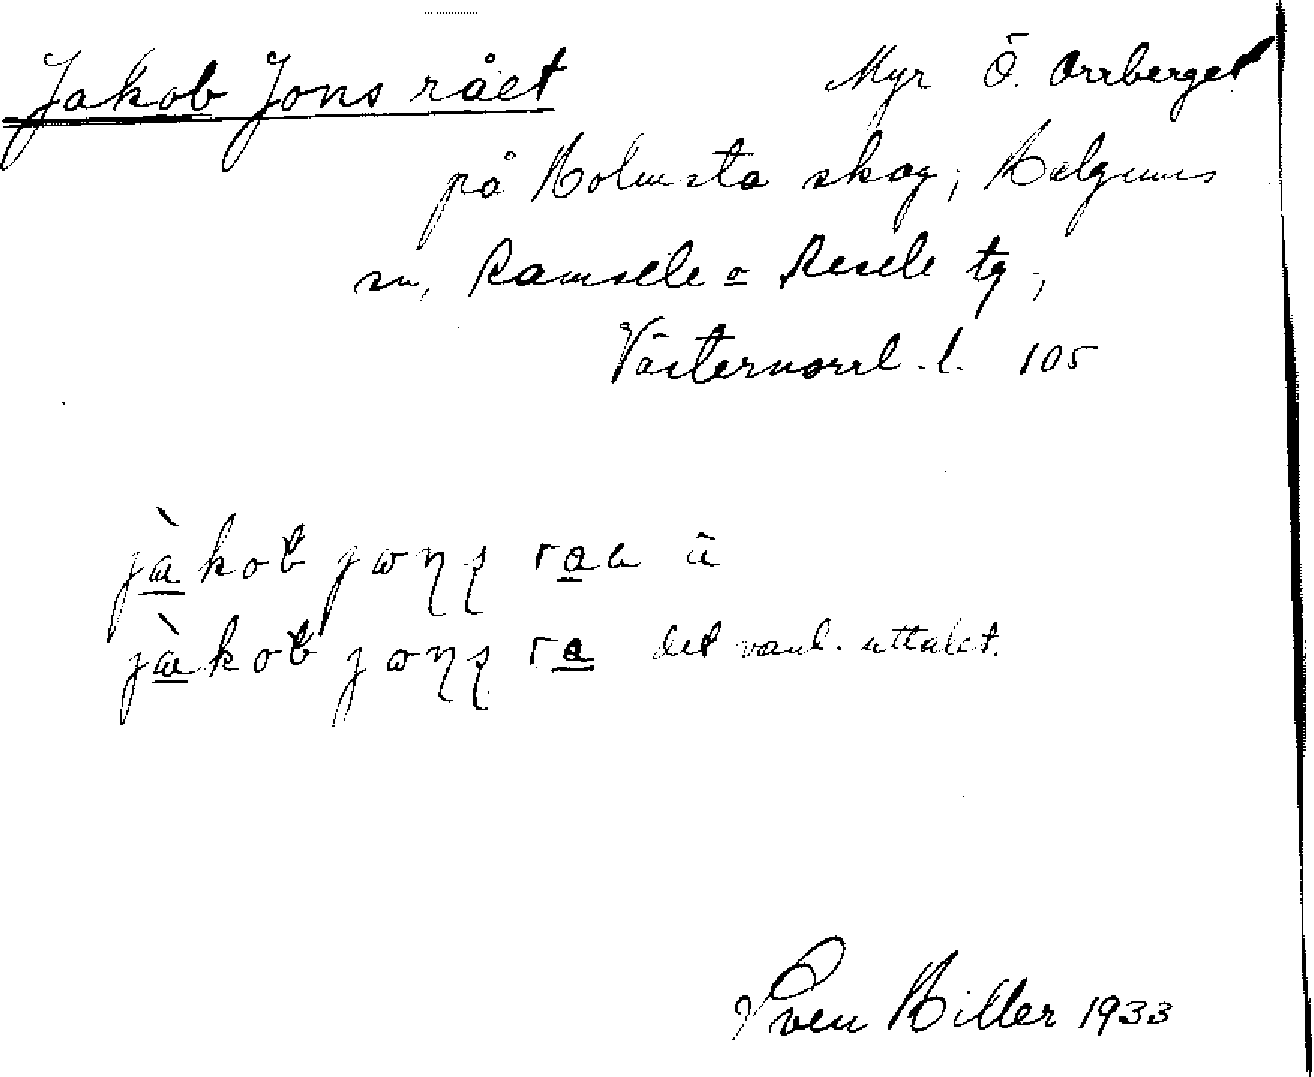 Jakob Jons rået Myr Ö. Orrberget
på Holmsta skog, Helgums
sn, Ramsele o Resele tg,
Västernorrl. l. 105
det vanl. uttalet.
Sven Hiller 1933